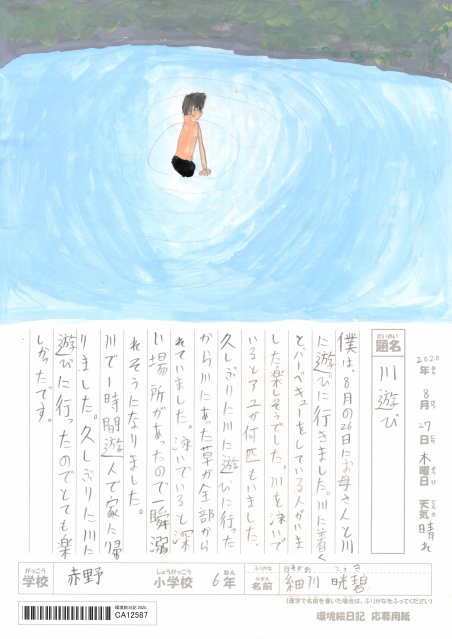 2020年 8月 27日 木曜日 天気 晴れ
題名 川遊び
僕は、8月の26日にお母さんと川
に遊びに行きました。川に着く
と、バーベキューをしている人がいま
した楽しそうでした。川を泳いで
いるとアユが何匹もいました、
久しぶりに川に遊びに行った
から川にあった草が全部から
れていました。泳いでいると深
い場所があったので一瞬溺
れそうになりました。
川で1時間遊人で家に帰
りました。久しぶりに川に
遊びに行ったのでとても楽
しかったです。
がっこう しょうがっこう ねん ふりがな
学校 赤野 小学校 6年 名前 細川 晄碧
(漢字で名前を書いた場合は、ふりがなをふってください)
環境絵日記 2020
CA12587
環境絵日記 応募用紙